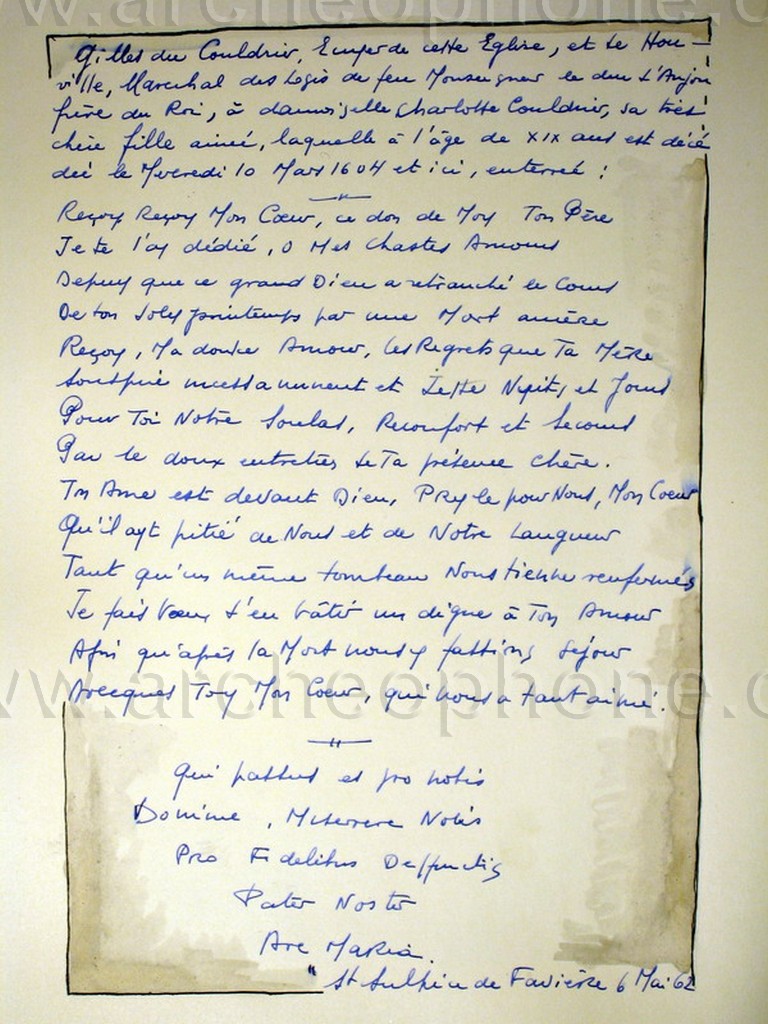 www.archeophone.c
Gilles du Couldrier, Escuyer de cette Eglise, et de Hou-
ville, Marechal des Logis de feu Monseigneur le duc d'Anjou
frère du Roi, à damoiselle Charlotte Couldrier, sa très
chère fille ainée, laquelle à l'âge de XIX ans est décé
dée le Mercredi 10 Mars 1604 et ici, enterrée :
Reçoy Reçoy Mon Cœur, ce don de Moy Ton Père
Je te l'ay dédié, o Mes chastes Amours
Depuy que ce grand Dieu a retranché le Cours
De ton Joly printemps par une Mort amère
Reçoy, Ma douce Amour, les Regrets que Ta Mère
Souspire incessamment et Jette Nuits et Jours
Pour Toi Notre Soulas, Reconfort et Secours
Par le doux entretien de Ta présence chère.
Ton Ame est devant Dieu, Pry le pour Nous, Mon Coeur
Qu'il ayt pitié de Nous et de Notre Langueur
Tant qu'un même tombeau Nous tienne renfermés
Je fais Vœux d'en bâtir un digne à Ton Amour
Afin qu'après la Mort nous y fassions Séjour
Avecques Toy Mon Coeur, qui nous a tant aimé.
www.archeophone.c
Qui passus es pro nobis
Domine, Miserere Nobis
Pro Fidelibus Deffunctis
Pater Noster
Ave Maria.
" St Sulpice de Favière 6 Mai 62